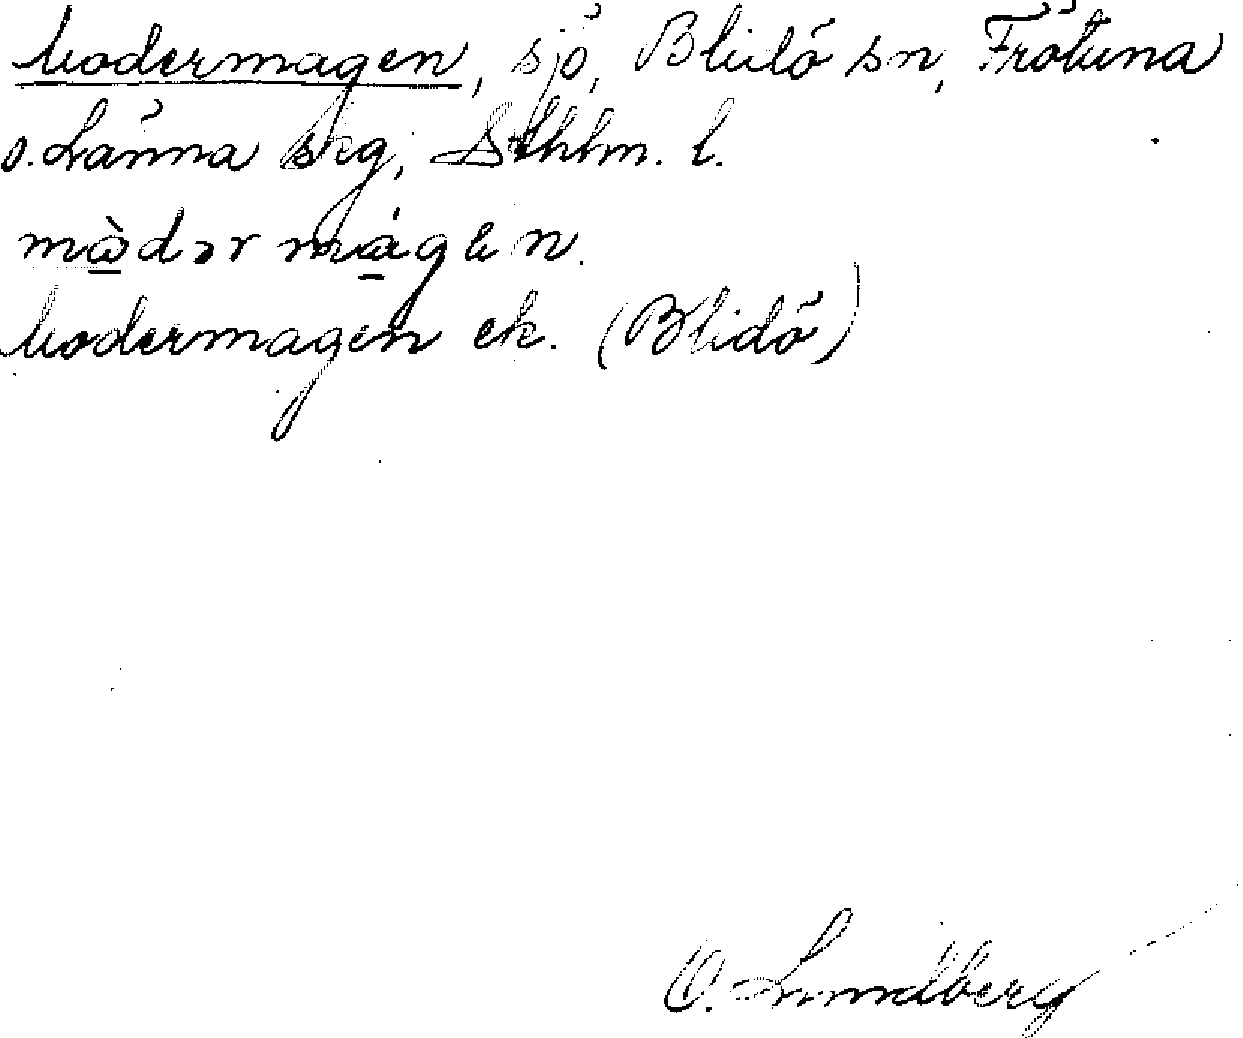 Modermagen, sjö, Blidö sn, Frötuna
o. Länna skg, Sthlm. l.
mὼdər mágen.
Modermagen ek. (Blidö)
O. Lundberg